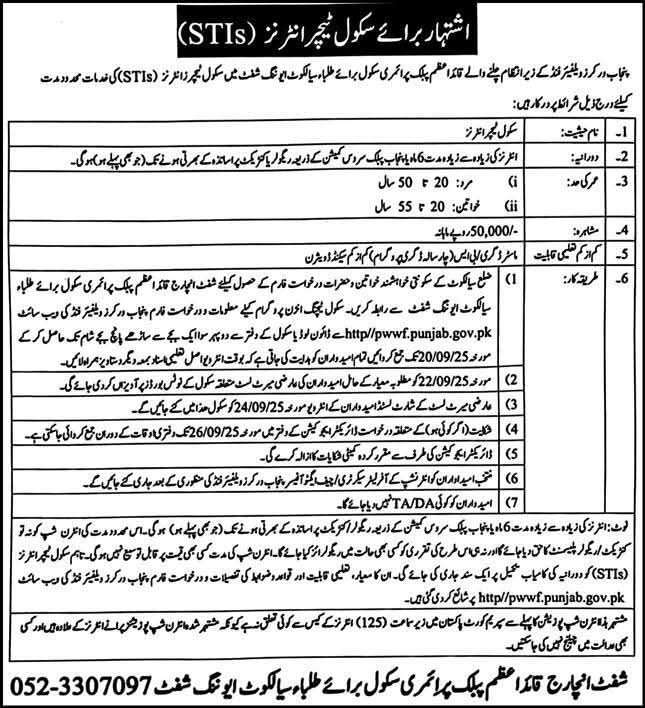 اشتہار برائے سکول ٹیچر انٹرنز (STIs)
پنجاب ورکرز ویلفیئر فنڈ کے زیر انتظام چلنے والے قائداعظم پبلک پرائمری سکول برائے طلباء سیالکوٹ ایوننگ شفٹ میں سکول ٹیچرز انٹرنز (STIs) کی خدمات محدود مدت
کیلئے درج ذیل شرائط پر درکار ہیں:
1۔ نام حیثیت: سکول ٹیچر انٹرنز
2۔ دورانیہ: انٹرنز کی زیادہ سے زیادہ مدت 6 ماہ یا پنجاب پبلک سروس کمیشن کے ذریعہ ریگولر یا کنٹریکٹ پر اساتذہ کے بھرتی ہونے تک (جو بھی پہلے ہو) ہوگی۔
3۔ عمر کی حد: i) مرد: 20 تا 50 سال
ii) خواتین: 20 تا 55 سال
4۔ مشاہرہ: 50,000/- روپے ماہانہ
5۔ کم از کم تعلیمی قابلیت ماسٹر ڈگری/بی ایس (چار سالہ ڈگری پروگرام) کم از کم سیکنڈ ڈویژن
6۔ طریقہ کار: 1) ضلع سیالکوٹ کے سکونتی خواہشمند خواتین و حضرات درخواست فارم کے حصول کیلئے شفٹ انچارج قائداعظم پبلک پرائمری سکول برائے طلباء
سیالکوٹ ایوننگ شفٹ سے رابطہ کریں۔ سکول ٹیچنگ انٹرن پروگرام کیلئے معلومات و درخواست فارم پنجاب ورکرز ویلفیئر فنڈ کی ویب سائٹ
http//pwwf.punjab.gov.pk سے ڈاؤن لوڈ یا سکول کے دفتر سے دوپہر سوا ایک بجے سے ساڑھے پانچ بجے شام تک حاصل کر کے
مورخہ 20/09/25 تک جمع کروائیں تمام امیدواران کو ہدایت کی جاتی ہے کہ بوقت انٹرویو اصل تعلیمی اسناد بمعہ دیگر دستاویز ہمراہ لائیں۔
2) مورخہ 22/09/25 کو مطلوبہ معیار کے حامل امیدواران کی عارضی میرٹ لسٹ متعلقہ سکول کے نوٹس بورڈز پر آویزاں کر دی جائے گی۔
3) عارضی میرٹ لسٹ کے شارٹ لسٹڈ امیدواران کے انٹرویو مورخہ 24/09/25 کو سکول ھذا میں کئے جائیں گے۔
4) شکایت (اگر کوئی ہو) کے متعلقہ درخواست ڈائریکٹر ایجوکیشن کے دفتر میں مورخہ 26/09/25 تک دفتری اوقات کے دوران جمع کروائی جا سکتی ہے۔
5) ڈائریکٹر ایجوکیشن کی طرف سے مقرر کردہ کمیٹی شکایات کا ازالہ کرے گی۔
6) منتخب امیدواران کو انٹرنشپ کے آفر لیٹر سیکرٹری/چیف ایگزیکٹو آفیسر پنجاب ورکرز ویلفیئر فنڈ کی منظوری کے بعد جاری کئے جائیں گے۔
7) امیدواران کو کوئی TA/DA نہیں دیا جائے گا۔
نوٹ: انٹرنز کی زیادہ سے زیادہ مدت 6 ماہ یا پنجاب پبلک سروس کمیشن کے ذریعے ریگولر/کنٹریکٹ پر اساتذہ کے بھرتی ہونے تک (جو بھی پہلے ہو) ہوگی۔ اس محدود مدت کی انٹرن شپ کو نہ تو
کنٹریکٹ/ریگولر پلیسمنٹ کا حق دیا جائے گا اور نہ ہی اس طرح کی تقرری کو کسی بھی حالت میں ریگولرائز کیا جائے گا۔ انٹرن شپ کی مدت کسی بھی قیمت پر قابل توسیع نہیں ہوگی۔ تاہم سکول ٹیچر انٹرنز
(STIs) کو دورانیہ کی کامیاب تکمیل پر ایک سند جاری کی جائے گی۔ ان کا معیار، تعلیمی قابلیت اور قواعد و ضوابط کی تفصیلات و درخواست فارم پنجاب ورکرز ویلفیئر فنڈ کی ویب سائٹ
http//pwwf.punjab.gov.pk پر شائع کر دی گئی ہیں۔
مشتہر ہذا انٹرن شپ پوزیشن کا پہلے سے سپریم کورٹ پاکستان میں زیر سماعت (125) انٹرنز کے کیس سے کوئی تعلق نہ ہے کیونکہ مشتہر شدہ انٹرن شپ پوزیشنز پرانے انٹرنز کے علاوہ ہیں اور کسی
بھی عدالت میں چیلنج نہیں کی جا سکتیں۔
شفٹ انچارج قائداعظم پبلک پرائمری سکول برائے طلباء سیالکوٹ ایوننگ شفٹ 052-3307097